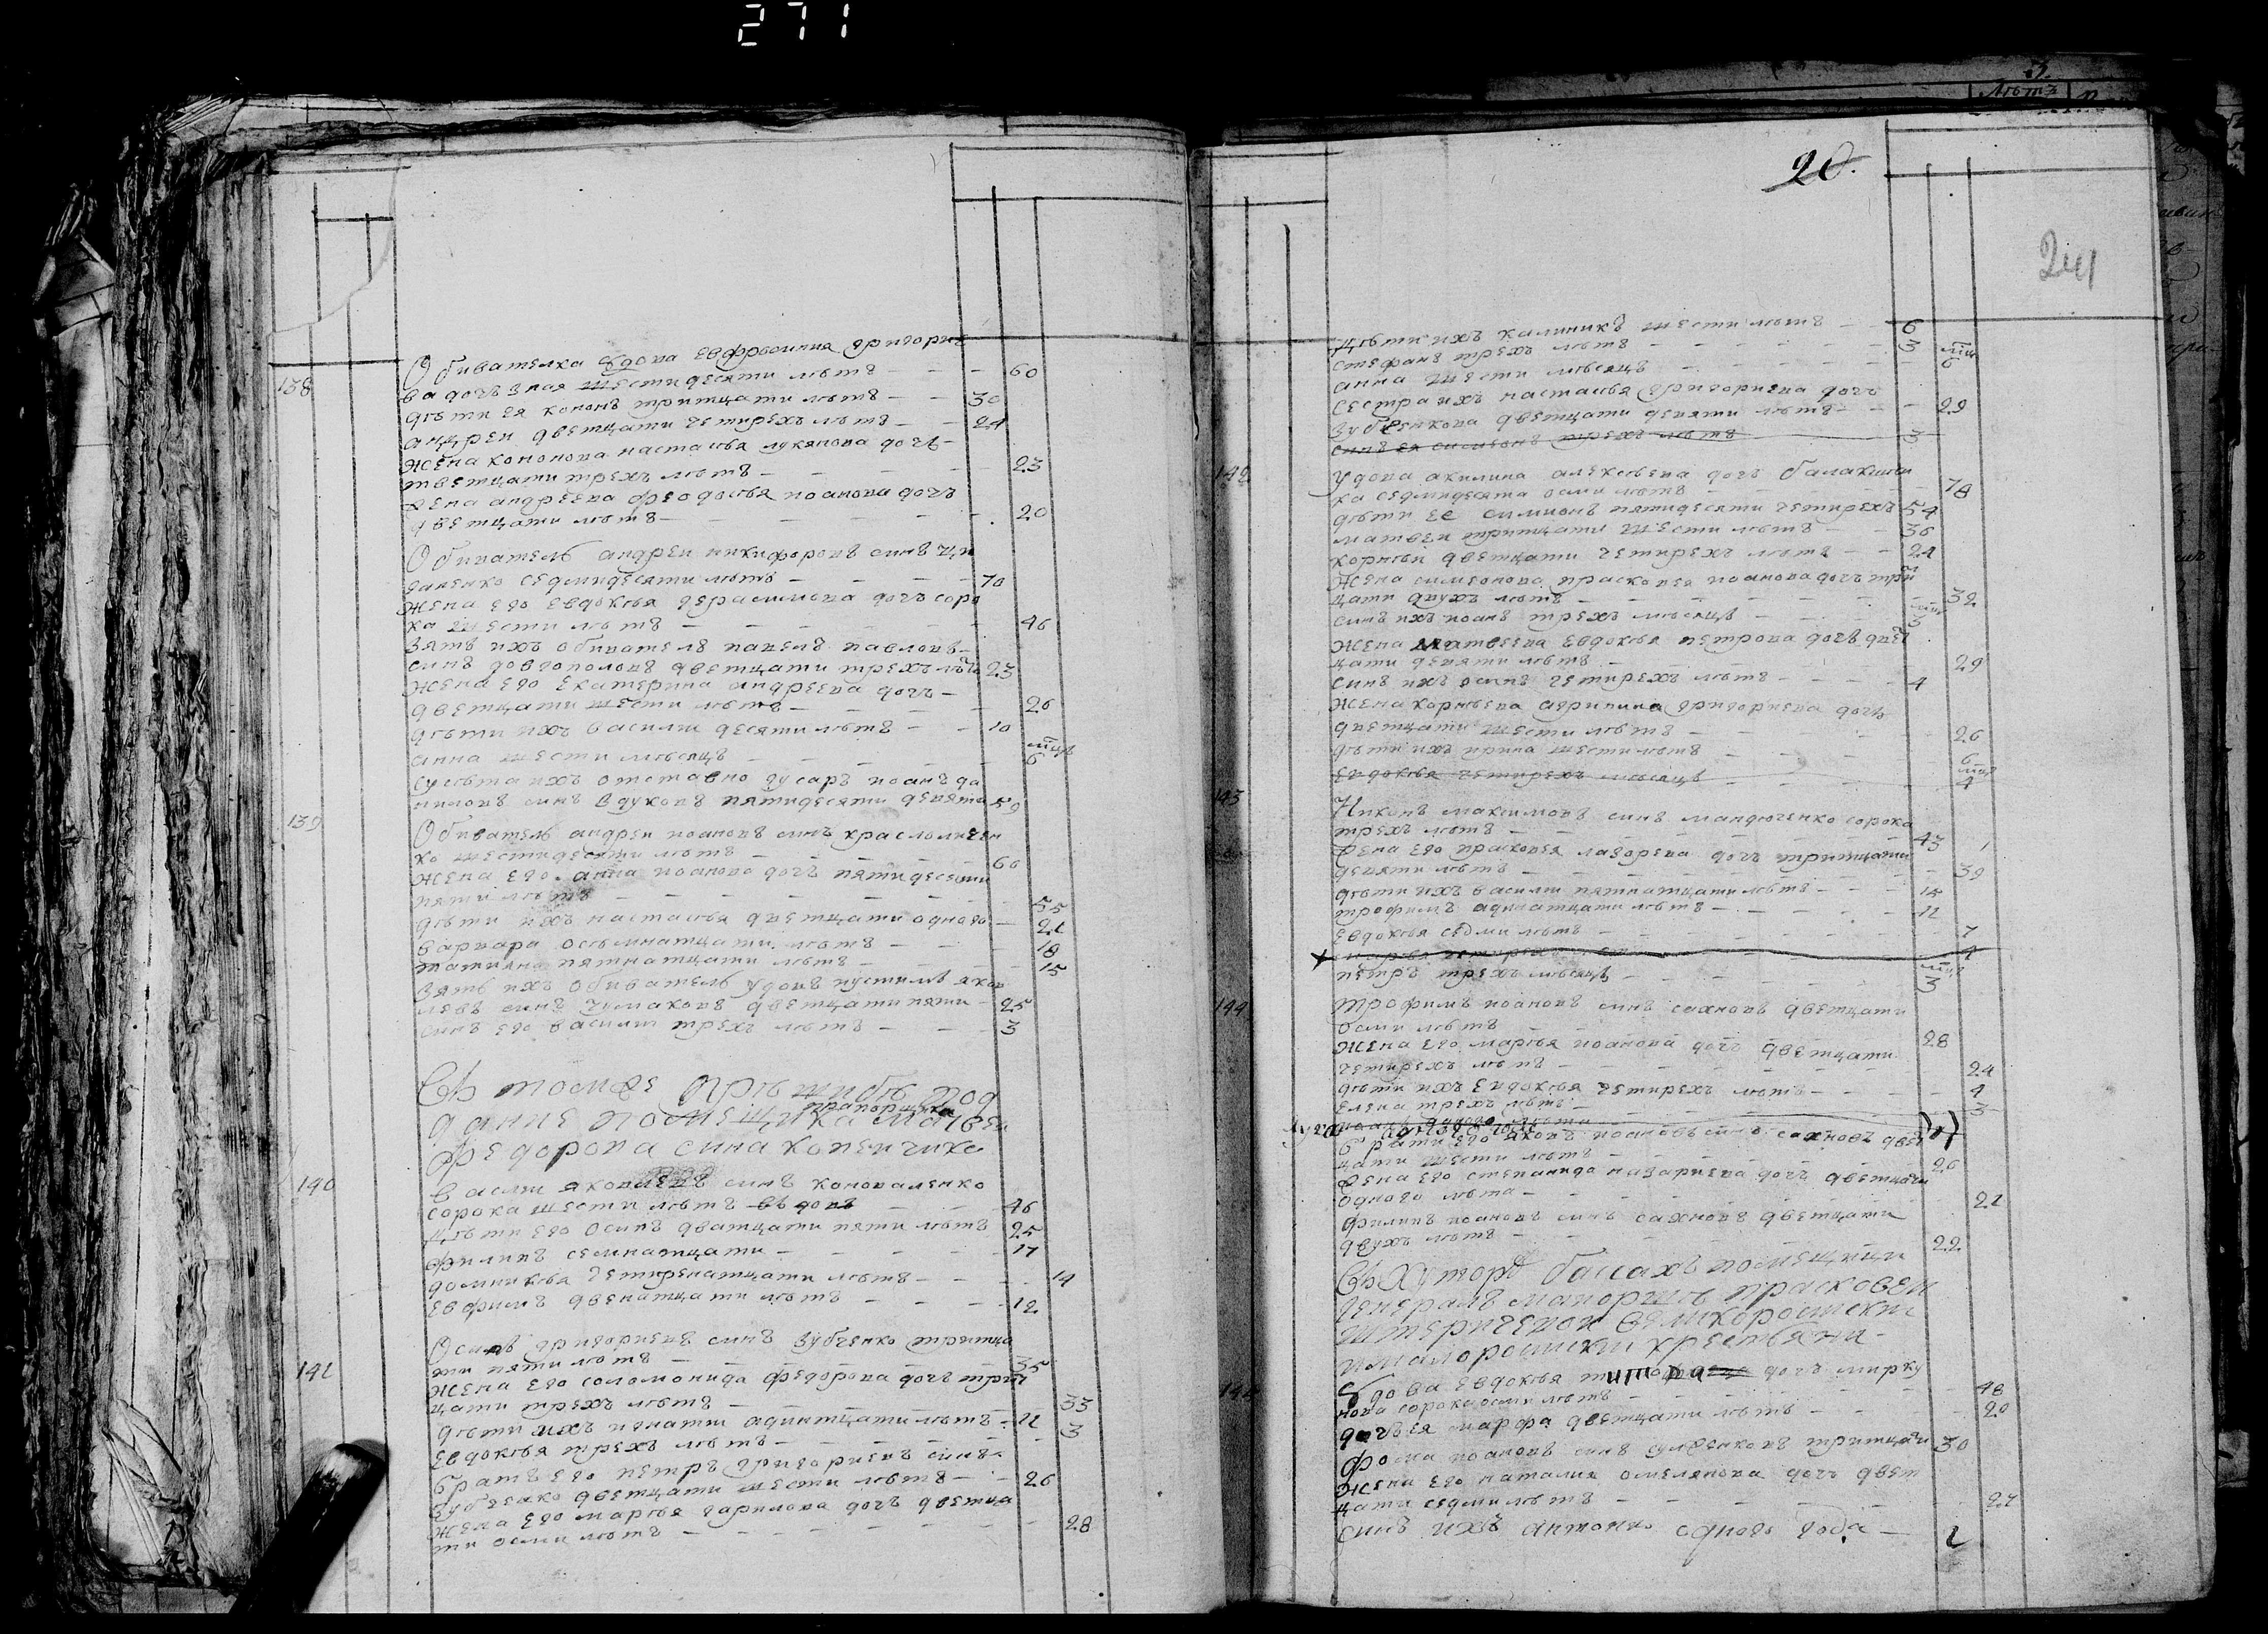 271
138
Обивателка вдова евфросиния григорие
ва дочъ зная шестидесяти летъ 60
дѣти ея кононъ тритцати лѣтъ 30
андреи дветцати четирехъ лѣтъ 24
жена кононова настасья лукянова дочъ
тветцати трехъ лѣтъ 23
жена андреева феодосья иоанова дочъ
дветцати лѣтъ 20
Обиватель андреи никифоровъ синъ ци
ганенко седмидесяти лѣтъ 70
жена его евдокѣя герасимова дочъ соро
ка шести лѣтъ 46
зять ихъ обиватель павелъ павловъ
синъ довгополовъ дветцати трехъ лѣтъ 23
жена его екатерина андреева дочъ
дветцати шести лѣтъ 26
дѣти ихъ василии десяти лѣтъ 10
анна шести мѣсяцъ мцъ 6
сусѣта ихъ отставно гусаръ иоанъ да
ниловъ синъ вдуховъ пятидесяти девяти 59
139
Обиватель андреи иоановъ синъ краслоличен
ко шестидесяти лѣтъ 60
жена его анна иоанова дочъ пятидесяти
пяти лѣтъ 55
дѣти ихъ настасья дветцати одного 21
варвара осьмнатцати лѣтъ 18
татияна пятнатцати лѣтъ 15
зять ихъ обиватель удовъ иустимъ яков
левъ синъ чумаковъ дветцати пяти 25
синъ его василии трехъ лѣтъ 3
Въ томже прѣшибѣ под
дание помещика прапорщика матвеи
федорова сина копеичика
140
василии яковлевъ синъ коноваленко
сорока шести лѣтъ въ довъ 46
Дѣти его осипъ дватцати пяти лѣтъ 25
филипъ семнатцати 17
домникѣя четиренатцати лѣтъ 14
евфимъ двенатцати лѣтъ 12
141
Осипъ григориевъ синъ зубченко тритца
ти пяти лѣтъ 35
жена его соломонида федорова дочъ трит
цати трехъ лѣтъ 33
дѣти ихъ игнатии адинтцати лѣтъ 11
евдокѣя трехъ лѣтъ 3
братъ его петръ григориевъ синъ
зубченко дветцати шести лѣтъ 26
жена его марѣя гарилова дочъ дветца
ти осми лѣтъ 28
20.
241
Дѣти ихъ калиникъ шести лѣтъ 6
стефанъ трехъ лѣтъ 3
анна шести мѣсяцъ мцъ 6
сестра ихъ настасья григориева дочъ
зубченкова дветцати девяти лѣтъ 29
синъ ея симеонъ трехъ лѣтъ 3
142
Удова акилина алексѣева дочъ балакшии
ка седмидесята осми лѣтъ 78
дѣти ее симионъ пятидесяти четирехъ 54
матвеи тритцати шести лѣтъ 36
корнѣи дветцати четирехъ лѣтъ 24
Жена симеонова прасковея иоанова дочъ трит
цати двухъ лѣтъ 32
синъ ихъ иоанъ трехъ мѣсяцъ мцъ 3
жена матвеева евдокѣя петрова дочъ двет
цати девяти лѣтъ 29
синъ ихъ осипъ четирехъ лѣтъ 4
жена корнѣева агрипина григориева дочъ
дветцати шести лѣтъ 26
дѣти ихъ ирина шести лѣтъ 6
евдокѣя четирехъ мѣсяцъ мцъ 4
143
Никонъ максимовъ синъ мандюченко сорока
трехъ лѣтъ 43
Жена его прасковея лазорева дочъ тритцати
девяти лѣтъ 39
дѣти ихъ василии пятнатцати лѣтъ 15
трофимъ адинатцати лѣтъ 11
евдокѣя седми лѣтъ 7
марѣя четирехъ 4
петръ трехъ мѣсяцъ мцъ 3
144
Трофимъ иоановъ синъ сахновъ дветцати
осми лѣтъ 28
жена его марѣя иоанова дочъ дветцати
четирехъ лѣтъ 24
дѣти ихъ евдокѣя четирехъ лѣтъ 4
елена трехъ лѣтъ 3
братъ его яковъ иоановъ синъ сахновъ двет
цати шести лѣтъ 26
Жена его степанида назариева дочъ дветцати
одного лѣта 21
филипъ иоановъ синъ сахновъ дветцати
двухъ лѣтъ 22
Въ Хуторѣ балахъ помещици
генералъ маиоршѣ прасковеи
штеричевои великоросииски
ималоросииски хрестьяни
Вдова евдокѣя титова дочъ мирку
нова сорока осми лѣтъ 48
дочъ ея марфа дветцати лѣтъ 20
фома иоановъ синъ гумѣнковъ тритцати 30
жена его наталия омелянова дочъ двет
цати седми лѣтъ 27
синъ ихъ антонъ одного года 1